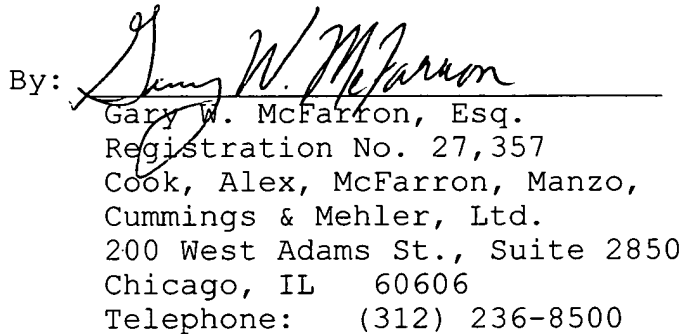 By: Gary W. McFarron
Gary W. McFarron, Esq.
Registration No. 27,357
Cook, Alex, McFarron, Manzo,
Cummings & Mehler, Ltd.
200 West Adams St., Suite 2850
Chicago, IL 60606
Telephone: (312) 236-8500